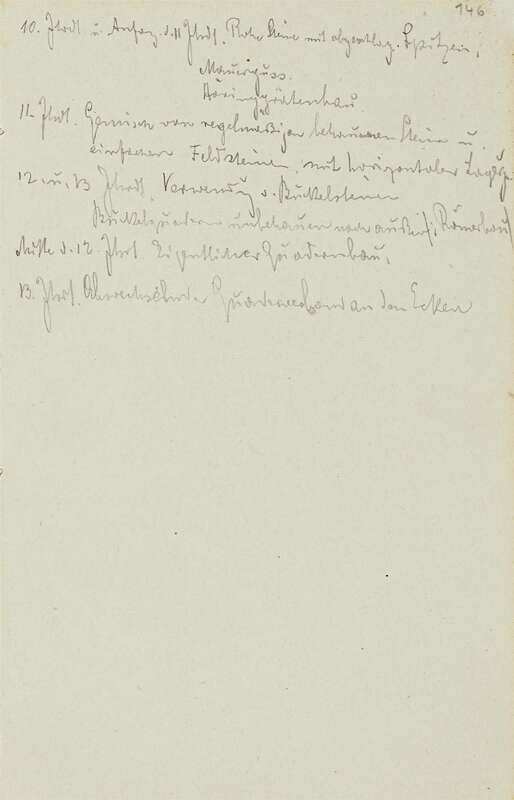 146
10. Jhrdt. u. Anfang d. 11 Jhrdt. Rohe Steine mit abgeschlag. Spitzen,
Mauerguss.
Häringgrätenbau
11. Jhrdt. Gemisch von regelmässigen behauenen Steine u.
einfachen Feldsteinen, mit horizontaler
12 u. 13 Jhrdt. Verwendung v. Buckelsteinen
Buckelquadern unbehauen nach aussen, Römerbau
Mitte d. 12. Jhrt. Eigentlicher Quadernbau,
13. Jhrt. Abwechselnde Quaderverband an den Ecken